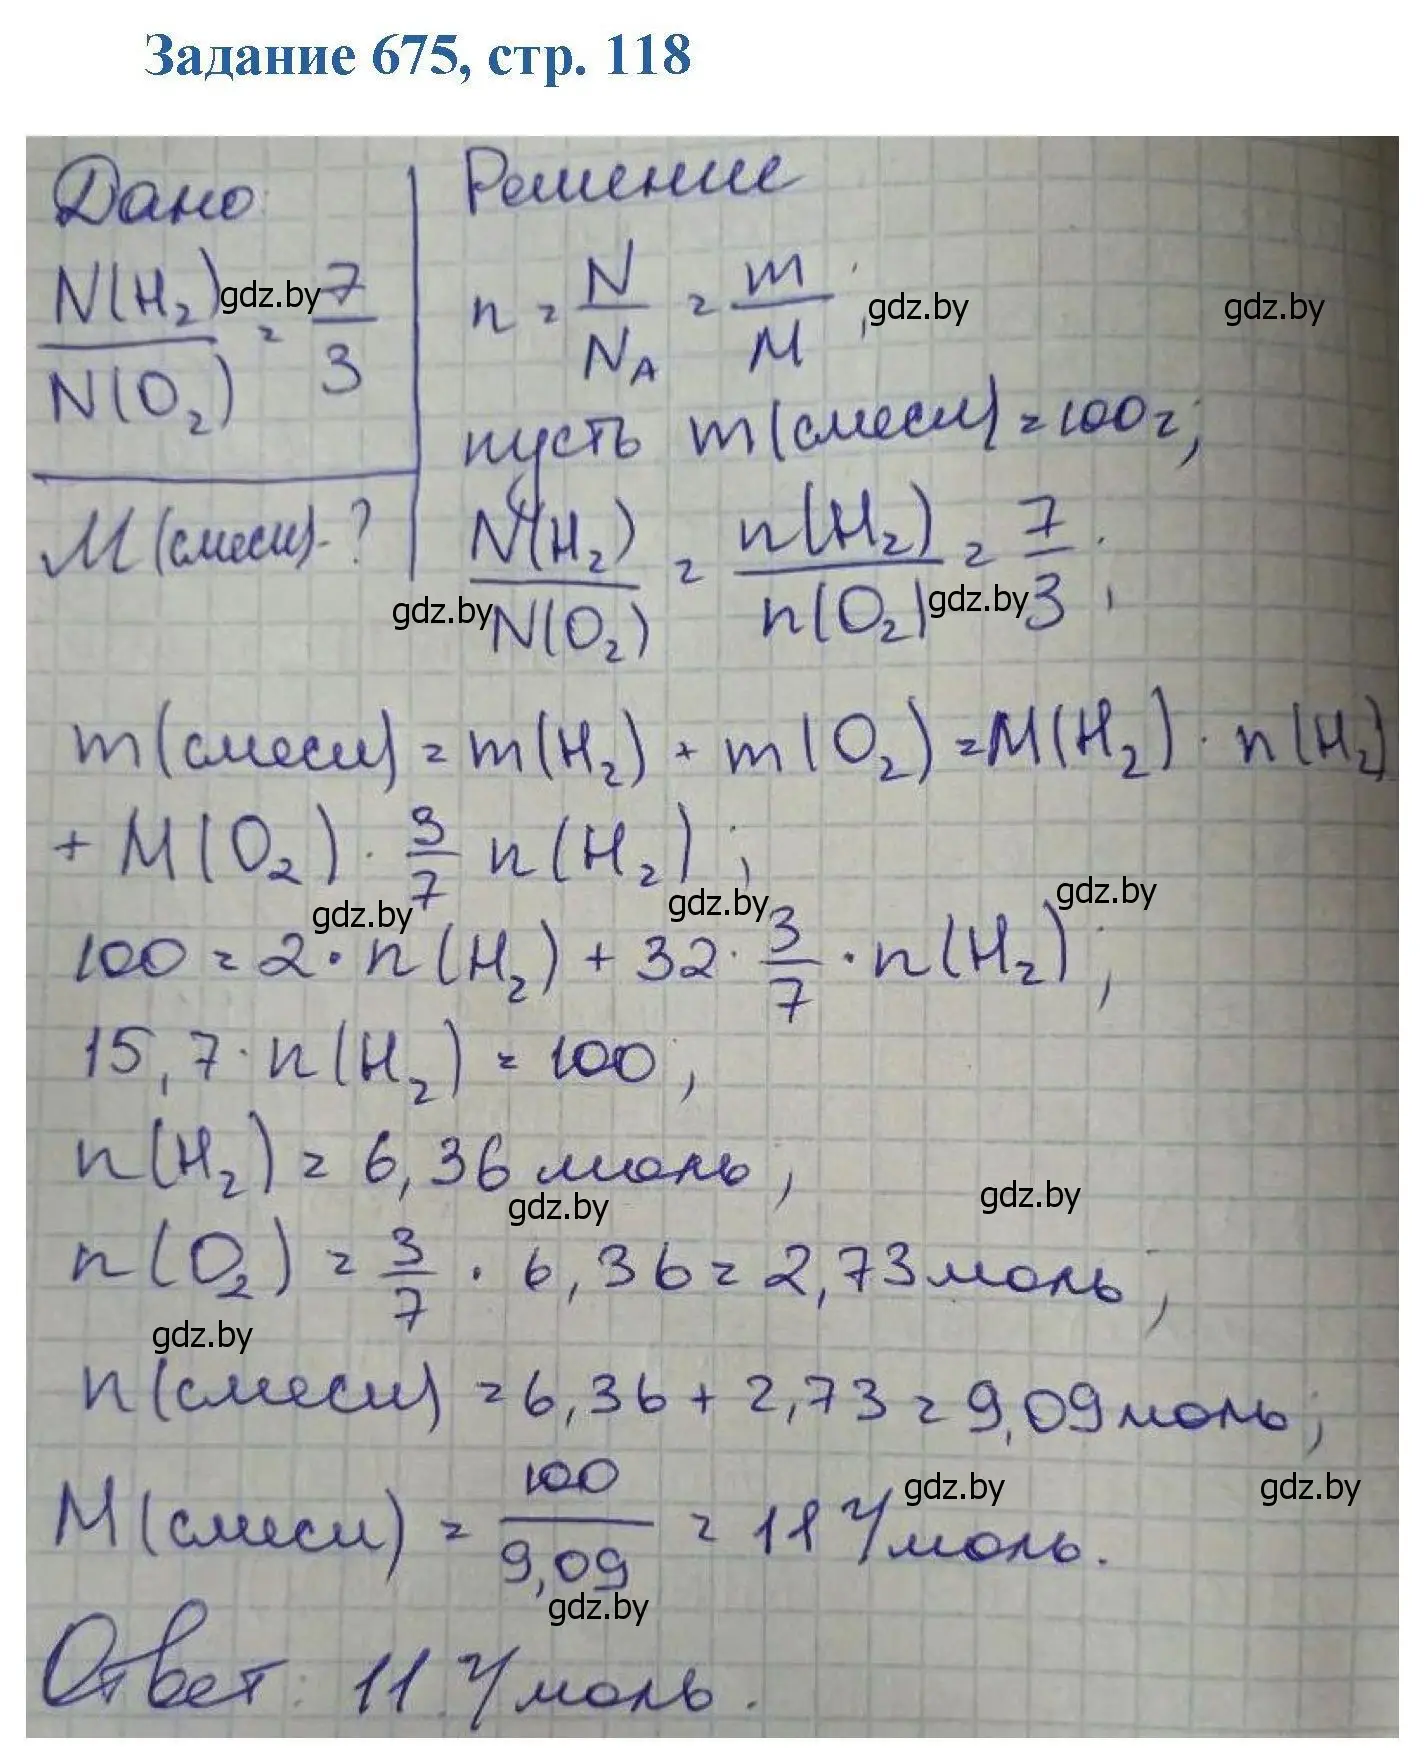 Задание 675, стр. 118
Дано
N(H₂) / N(O₂) = 7/3
M(смеси) - ?
Решение
n = N/N_A = m/M;
пусть m(смеси) = 100г;
N(H₂) / N(O₂) = n(H₂) / n(O₂) = 7/3;
m(смеси) = m(H₂) + m(O₂) = M(H₂) · n(H₂)
+ M(O₂) · 3/7 n(H₂);
100 = 2 · n(H₂) + 32 · 3/7 · n(H₂);
15,7 · n(H₂) = 100;
n(H₂) = 6,36 моль;
n(O₂) = 3/7 · 6,36 = 2,73 моль;
n(смеси) = 6,36 + 2,73 = 9,09 моль;
M(смеси) = 100/9,09 = 11 г/моль.
Ответ: 11 г/моль.
gdz.by
gdz.by
gdz.by
gdz.by
gdz.by
gdz.by
gdz.by
gdz.by
gdz.by
gdz.by
gdz.by
gdz.by
gdz.by
gdz.by